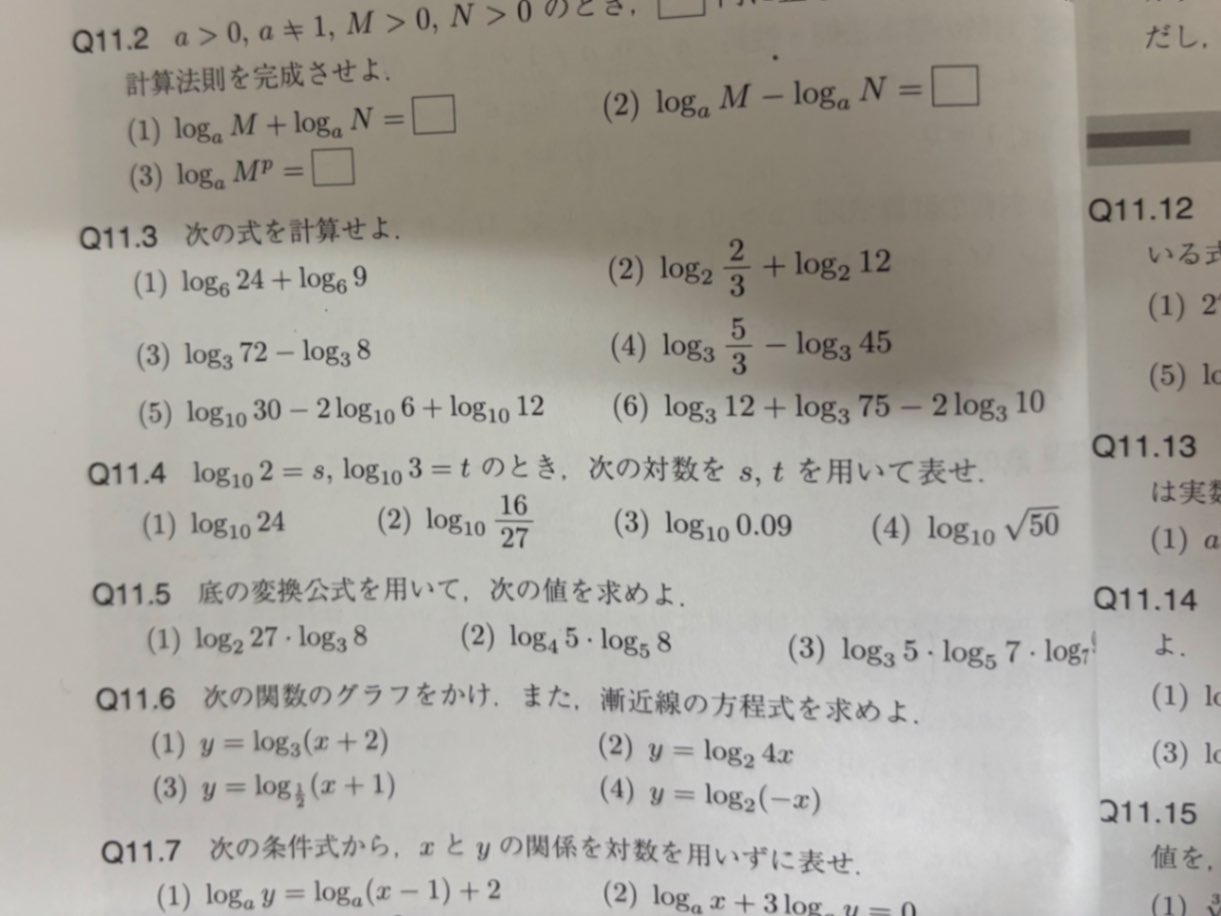 Q11.2 a > 0, a ≠ 1, M > 0, N > 0 のとき, □
計算法則を完成させよ.
(1) logₐ M + logₐ N = □ (2) logₐ M − logₐ N = □
(3) logₐ Mᵖ = □
Q11.3 次の式を計算せよ.
(1) log₆ 24 + log₆ 9 (2) log₂ 2/3 + log₂ 12
(3) log₃ 72 − log₃ 8 (4) log₃ 5/3 − log₃ 45
(5) log₁₀ 30 − 2 log₁₀ 6 + log₁₀ 12 (6) log₃ 12 + log₃ 75 − 2 log₃ 10
Q11.4 log₁₀ 2 = s, log₁₀ 3 = t のとき, 次の対数を s, t を用いて表せ.
(1) log₁₀ 24 (2) log₁₀ 16/27 (3) log₁₀ 0.09 (4) log₁₀ √50
Q11.5 底の変換公式を用いて, 次の値を求めよ.
(1) log₂ 27 · log₃ 8 (2) log₄ 5 · log₅ 8 (3) log₃ 5 · log₅ 7 · log₇
Q11.6 次の関数のグラフをかけ. また, 漸近線の方程式を求めよ.
(1) y = log₃(x + 2) (2) y = log₂ 4x
(3) y = log_{1/2}(x + 1) (4) y = log₂(−x)
Q11.7 次の条件式から, x と y の関係を対数を用いずに表せ.
(1) logₐ y = logₐ(x − 1) + 2 (2) logₐ x + 3 logₐ y = 0
だし,
Q11.12
いる式
(1) 2
(5) lo
Q11.13
は実数
(1) a
Q11.14
よ.
(1) lo
(3) lo
Q11.15
値を,
(1)